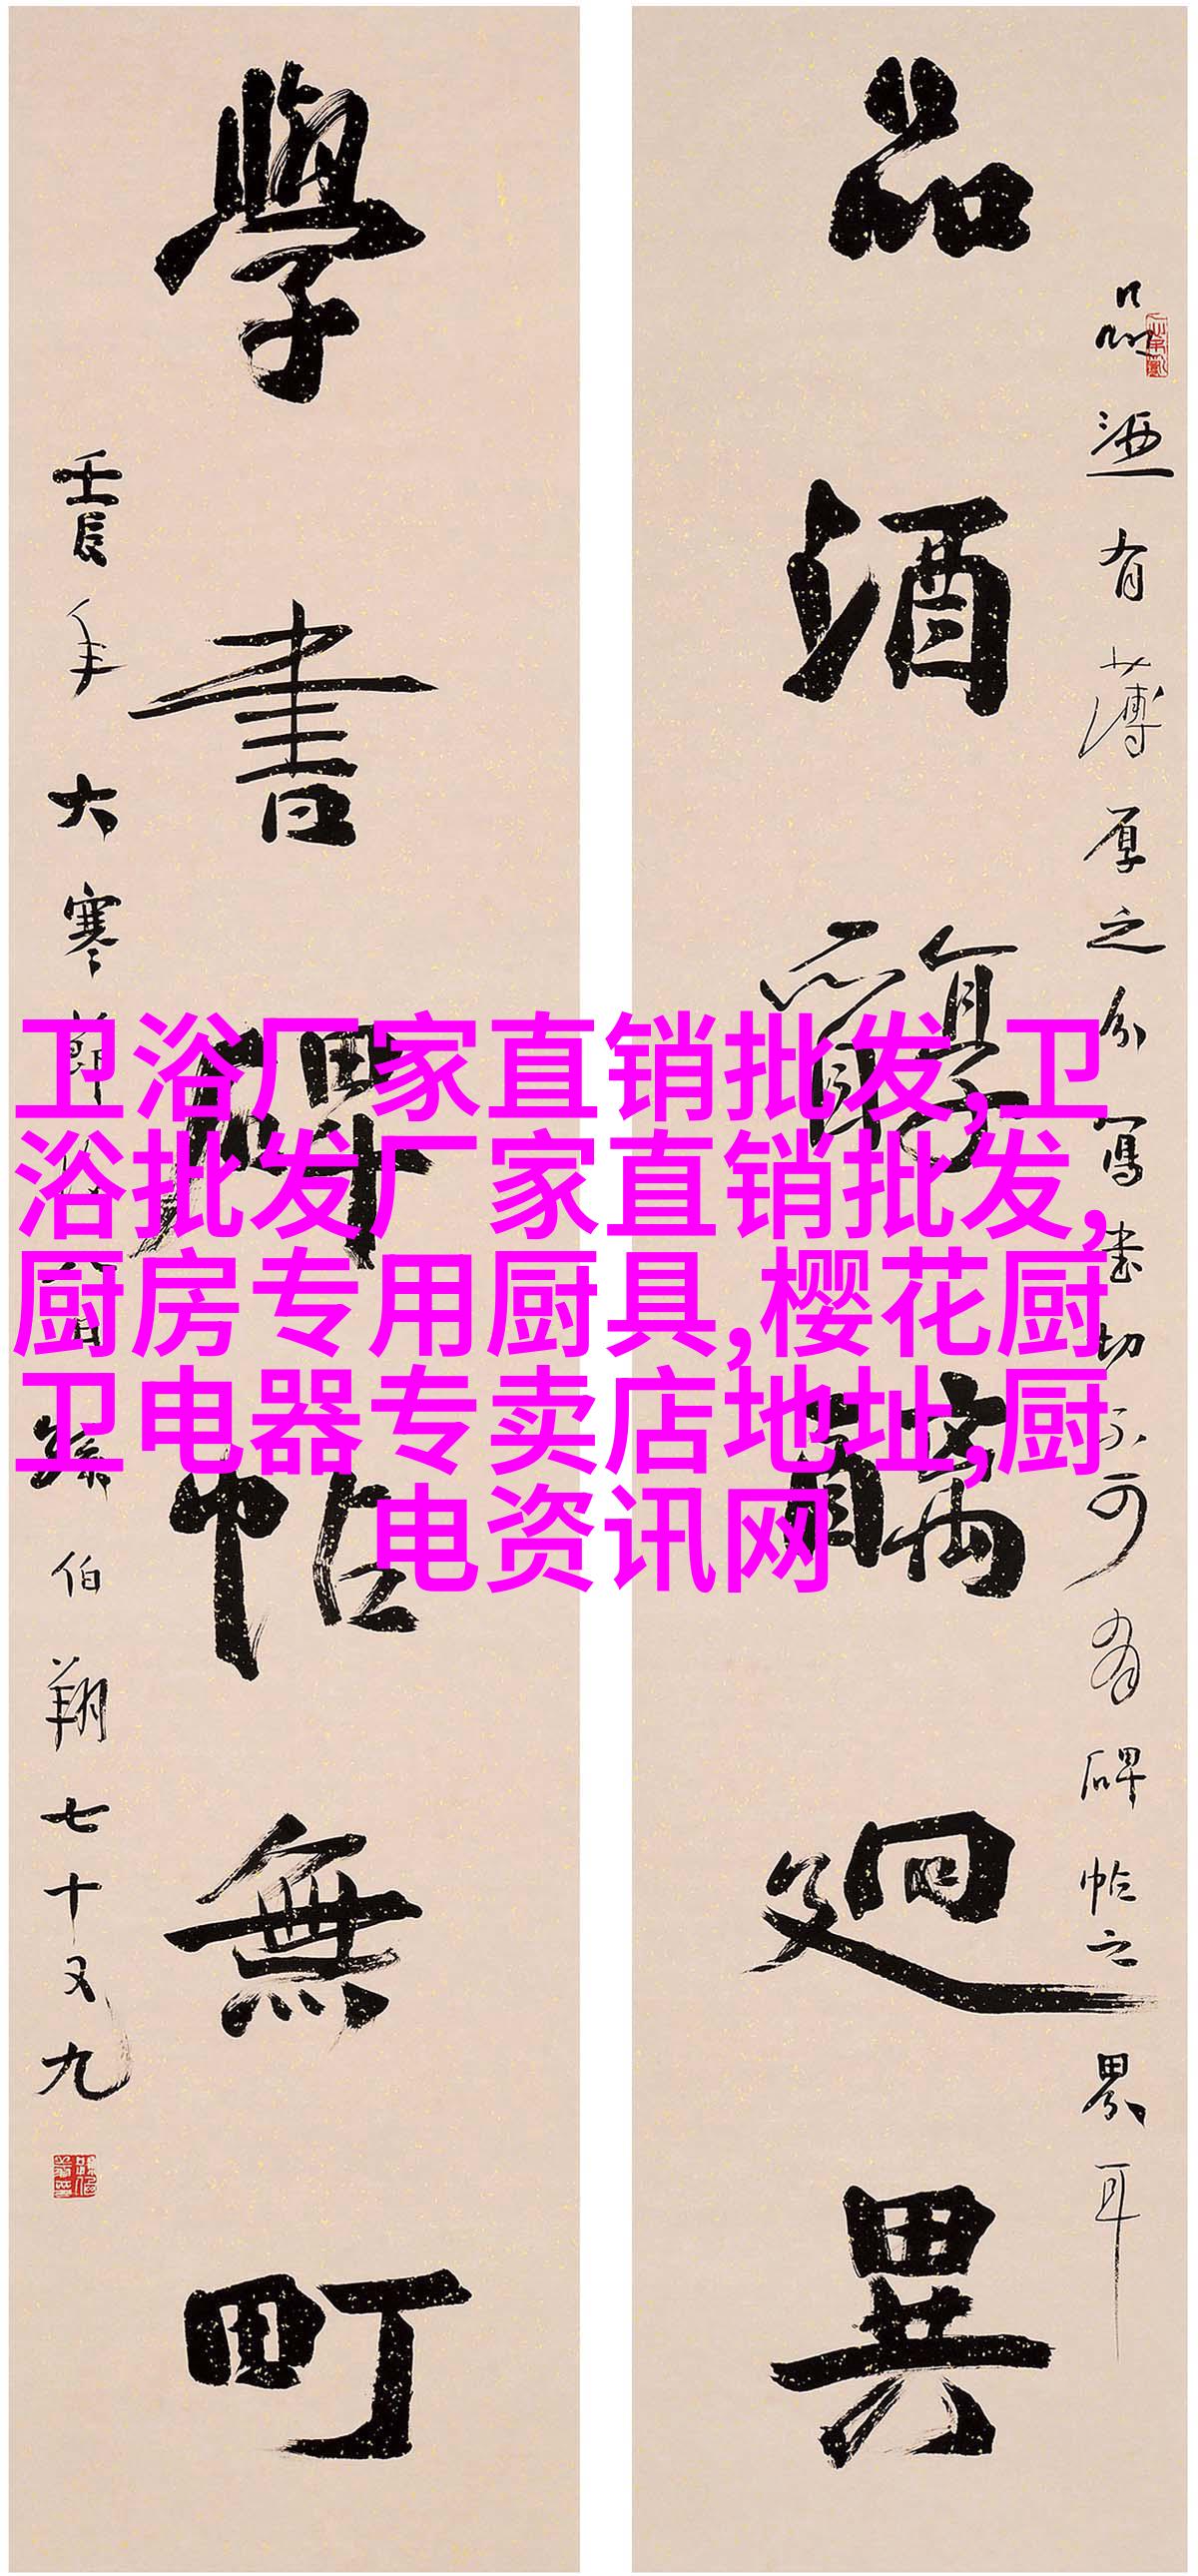 品酒有薄厚之分寫書切不可有碑帖之界耳
品酒醇醨迥異
學書碑帖無町
壬辰年大寒節
孫伯翔七十又九
卫浴厂家直销批发,卫
浴批发厂家直销批发,
厨房专用厨具,樱花厨
卫电器专卖店地址,厨
电资讯网